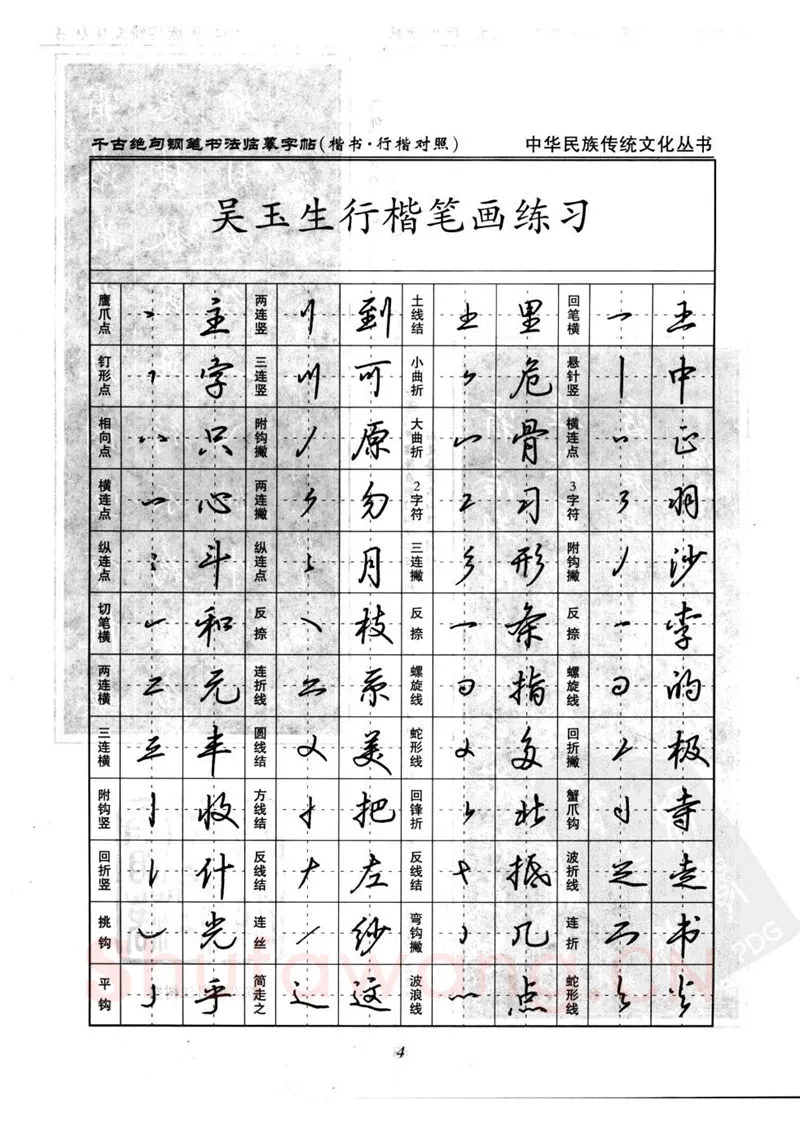 千古绝句钢笔书法临摹字帖(楷书·行楷对照) 中华民族传统文化丛书
吴玉生行楷笔画练习
鹰爪点 主 两连竖 到 土线结 里 回笔横 王
钉形点 字 三连竖 可 小曲折 危 悬针竖 中
相向点 只 附钩撇 原 大曲折 骨 横连点 正
横连点 心 两连撇 勿 2字符 习 3字符 羽
纵连点 斗 纵连点 月 三连撇 形 附钩撇 沙
切笔横 和 反捺 枝 反捺 条 反捺 李
两连横 元 连折线 系 螺旋线 指 螺旋线 的
三连横 丰 圆线结 美 蛇形线 多 回折撇 极
附钩竖 收 方线结 把 回锋折 北 蟹爪钩 寺
回折竖 什 反线结 左 反线结 抵 波折线 走
挑钩 光 连丝 纱 弯钩撇 几 连折 书
平钩 乎 简走之 这 波浪线 点 蛇形线 炎
Shufawang.CN
PDG
4